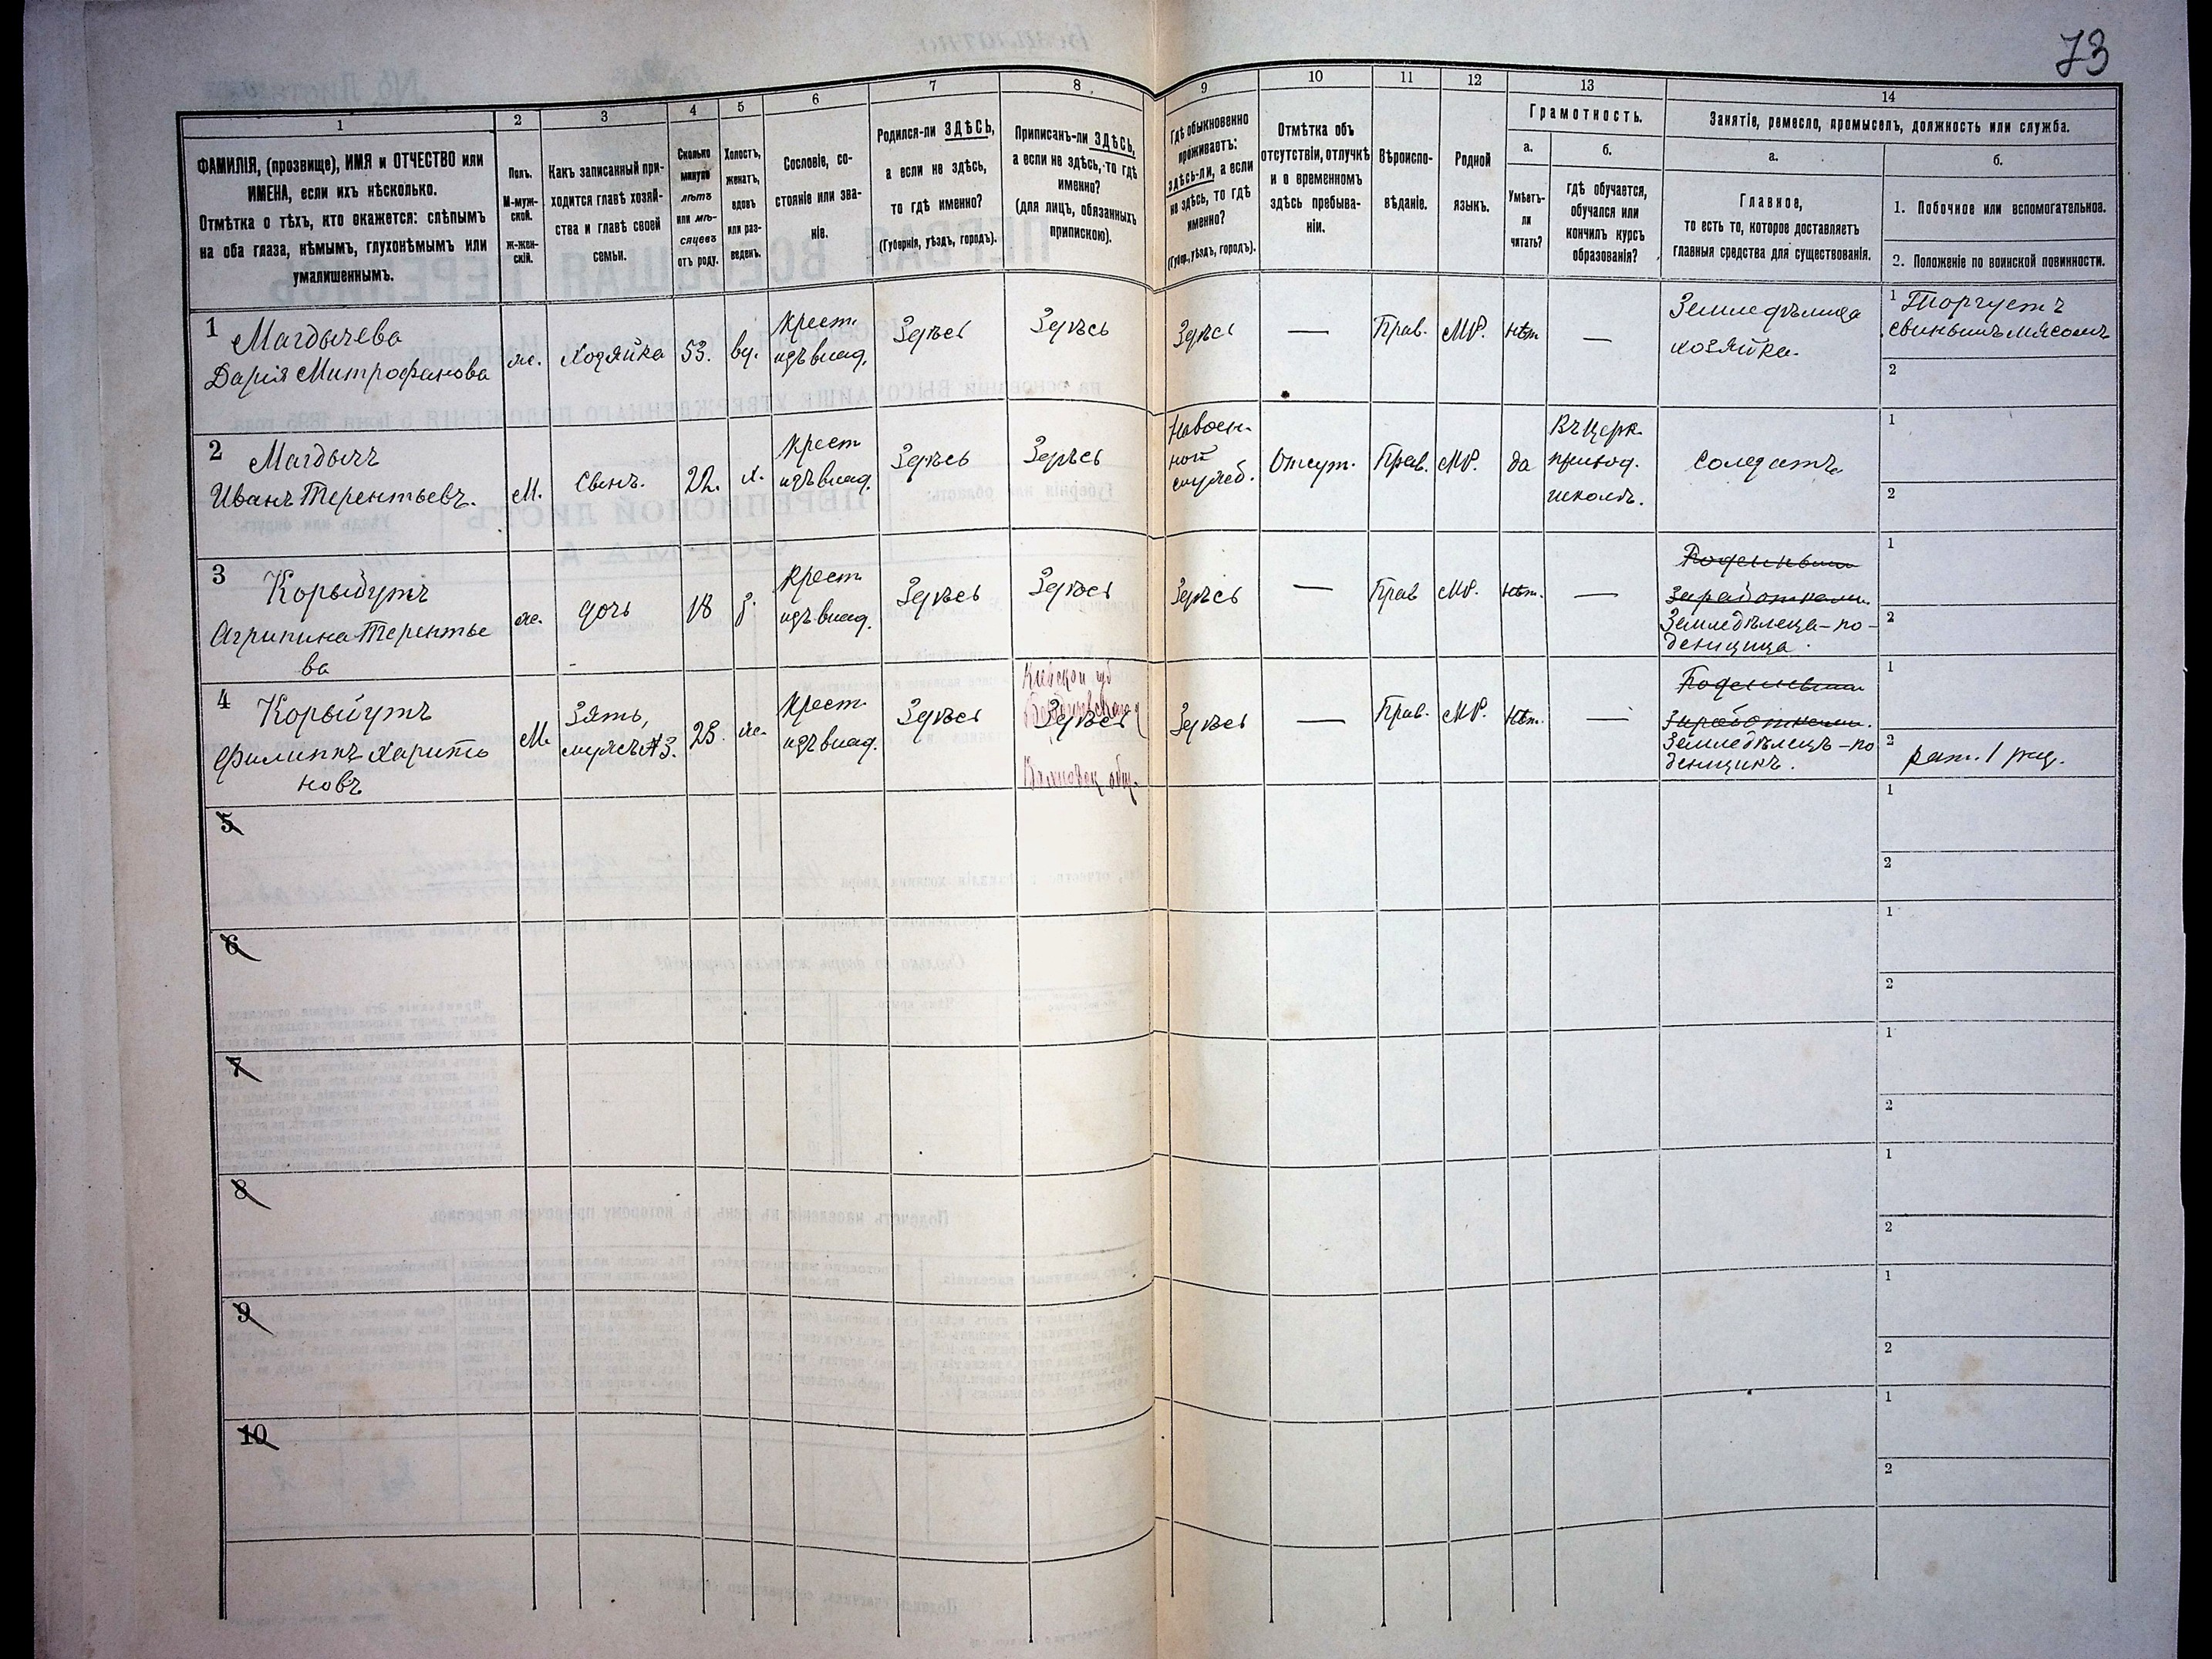 73
1
2
3
4
5
6
7
8
9
10
11
12
13
14
ФАМИЛІЯ, (прозвище), ИМЯ и ОТЧЕСТВО или
ИМЕНА, если ихъ нѣсколько.
Отмѣтка о тѣхъ, кто окажется: слѣпымъ
на оба глаза, нѣмымъ, глухонѣмымъ или
умалишеннымъ.
Полъ.
М-муж-
ской.
Ж-жен-
скій.
Какъ записанный при-
ходится главѣ хозяй-
ства и главѣ своей
семьи.
Сколько
минуло
лѣтъ
или мѣ-
сяцевъ
отъ роду.
Холостъ,
женатъ,
вдовъ
или раз-
веденъ.
Сословіе, со-
стояніе или зва-
ніе.
Родился-ли ЗДѢСЬ,
а если не здѣсь,
то гдѣ именно?
(Губернія, уѣздъ, городъ).
Приписанъ-ли ЗДѢСЬ,
а если не здѣсь, то гдѣ
именно?
(для лицъ, обязанныхъ
припискою).
Гдѣ обыкновенно
проживаетъ:
здѣсь-ли, а если
не здѣсь, то гдѣ
именно?
(Губер., уѣздъ, городъ).
Отмѣтка объ
отсутствіи, отлучкѣ
и о временномъ
здѣсь пребыва-
ніи.
Вѣроиспо-
вѣданіе.
Родной
языкъ.
Грамотность.
а.
б.
Умѣетъ-
ли
читать?
гдѣ обучается,
обучался или
кончилъ курсъ
образованія?
Занятіе, ремесло, промыселъ, должность или служба.
а.
б.
Главное,
то есть то, которое доставляетъ
главныя средства для существованія.
1. Побочное или вспомогательное.
2. Положеніе по воинской повинности.
1
Магдычева
Дарія Митрофанова
ж.
Хозяйка
53.
вд.
Крест.
изъ влад.
Здѣсь
Здѣсь
Здѣсь
—
Прав.
МР.
нѣт
—
Земледѣлица
хозяйка.
1 Торгуетъ
свинымъ мясомъ
2
2
Магдычъ
Иванъ Терентьевъ.
М.
Сынъ.
22.
х.
Крест
изъ влад.
Здѣсь
Здѣсь
На воен-
ной
служб.
Отсут.
Прав.
МР.
да
Въ церк.
приход.
школѣ.
солдатъ
1
2
3
Корыбутъ
Агрипина Терентье
ва
ж.
дочь
18
з.
Крест
изъ влад.
Здѣсь
Здѣсь
Здѣсь
—
Прав
МР.
нѣт.
—
Поденными
заработками.
Земледѣлеца-по-
денщица.
1
2
4
Корыбутъ
Филиппъ Харито
новъ
М.
Зять,
мужъ №3.
23.
ж.
Крест.
изъ влад.
Здѣсь
Кіевской губ
Здѣсь
общ.
Здѣсь
—
Прав.
МР.
Нѣт.
—
Поденными
заработками.
Земледѣлецъ-по
денщикъ.
1
2 рат. 1 раз.
5
1
2
6
1
2
7
1
2
8
1
2
9
1
2
10
1
2